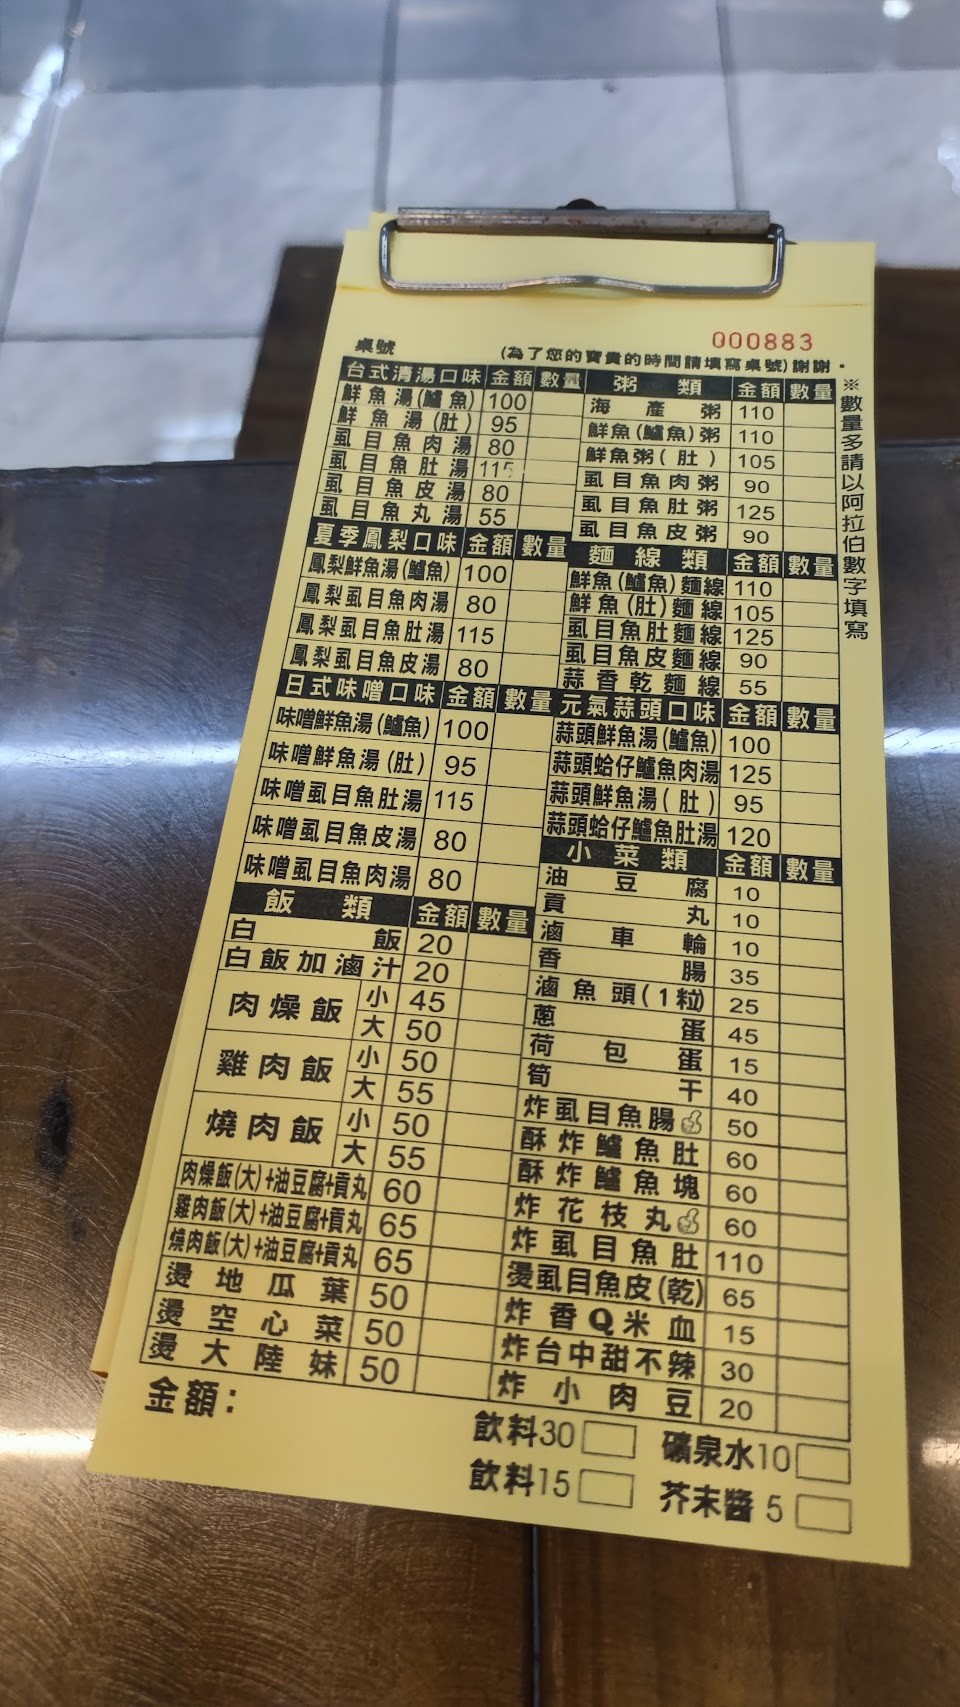 000883
桌號
(為了您的寶貴的時間請填寫桌號)謝謝。
※數量多請以阿拉伯數字填寫
台式清湯口味 金額 數量
鮮魚湯(鱸魚) 100
鮮魚湯(肚) 95
虱目魚肉湯 80
虱目魚肚湯 115
虱目魚皮湯 80
虱目魚丸湯 55
夏季鳳梨口味 金額 數量
鳳梨鮮魚湯(鱸魚) 100
鳳梨虱目魚肉湯 80
鳳梨虱目魚肚湯 115
鳳梨虱目魚皮湯 80
日式味噌口味 金額 數量
味噌鮮魚湯(鱸魚) 100
味噌鮮魚湯(肚) 95
味噌虱目魚肚湯 115
味噌虱目魚皮湯 80
味噌虱目魚肉湯 80
飯類 金額 數量
白飯 20
白飯加滷汁 20
肉燥飯 小 45
大 50
雞肉飯 小 50
大 55
燒肉飯 小 50
大 55
肉燥飯(大)+油豆腐+貢丸 60
雞肉飯(大)+油豆腐+貢丸 65
燒肉飯(大)+油豆腐+貢丸 65
燙地瓜葉 50
燙空心菜 50
燙大陸妹 50
粥類 金額 數量
海產粥 110
鮮魚(鱸魚)粥 110
鮮魚粥(肚) 105
虱目魚肉粥 90
虱目魚肚粥 125
虱目魚皮粥 90
麵線類 金額 數量
鮮魚(鱸魚)麵線 110
鮮魚(肚)麵線 105
虱目魚肚麵線 125
虱目魚皮麵線 90
蒜香乾麵線 55
元氣蒜頭口味 金額 數量
蒜頭鮮魚湯(鱸魚) 100
蒜頭蛤仔鱸魚肉湯 125
蒜頭鮮魚湯(肚) 95
蒜頭蛤仔鱸魚肚湯 120
小菜類 金額 數量
油豆腐 10
貢丸 10
滷車輪 10
香腸 35
滷魚頭(1粒) 25
蔥蛋 45
荷包蛋 15
筍干 40
炸虱目魚腸 50
酥炸鱸魚肚 60
酥炸鱸魚塊 60
炸花枝丸 60
炸虱目魚肚 110
燙虱目魚皮(乾) 65
炸香Q米血 15
炸台中甜不辣 30
炸小肉豆 20
金額:
飲料30
礦泉水10
飲料15
芥末醬 5